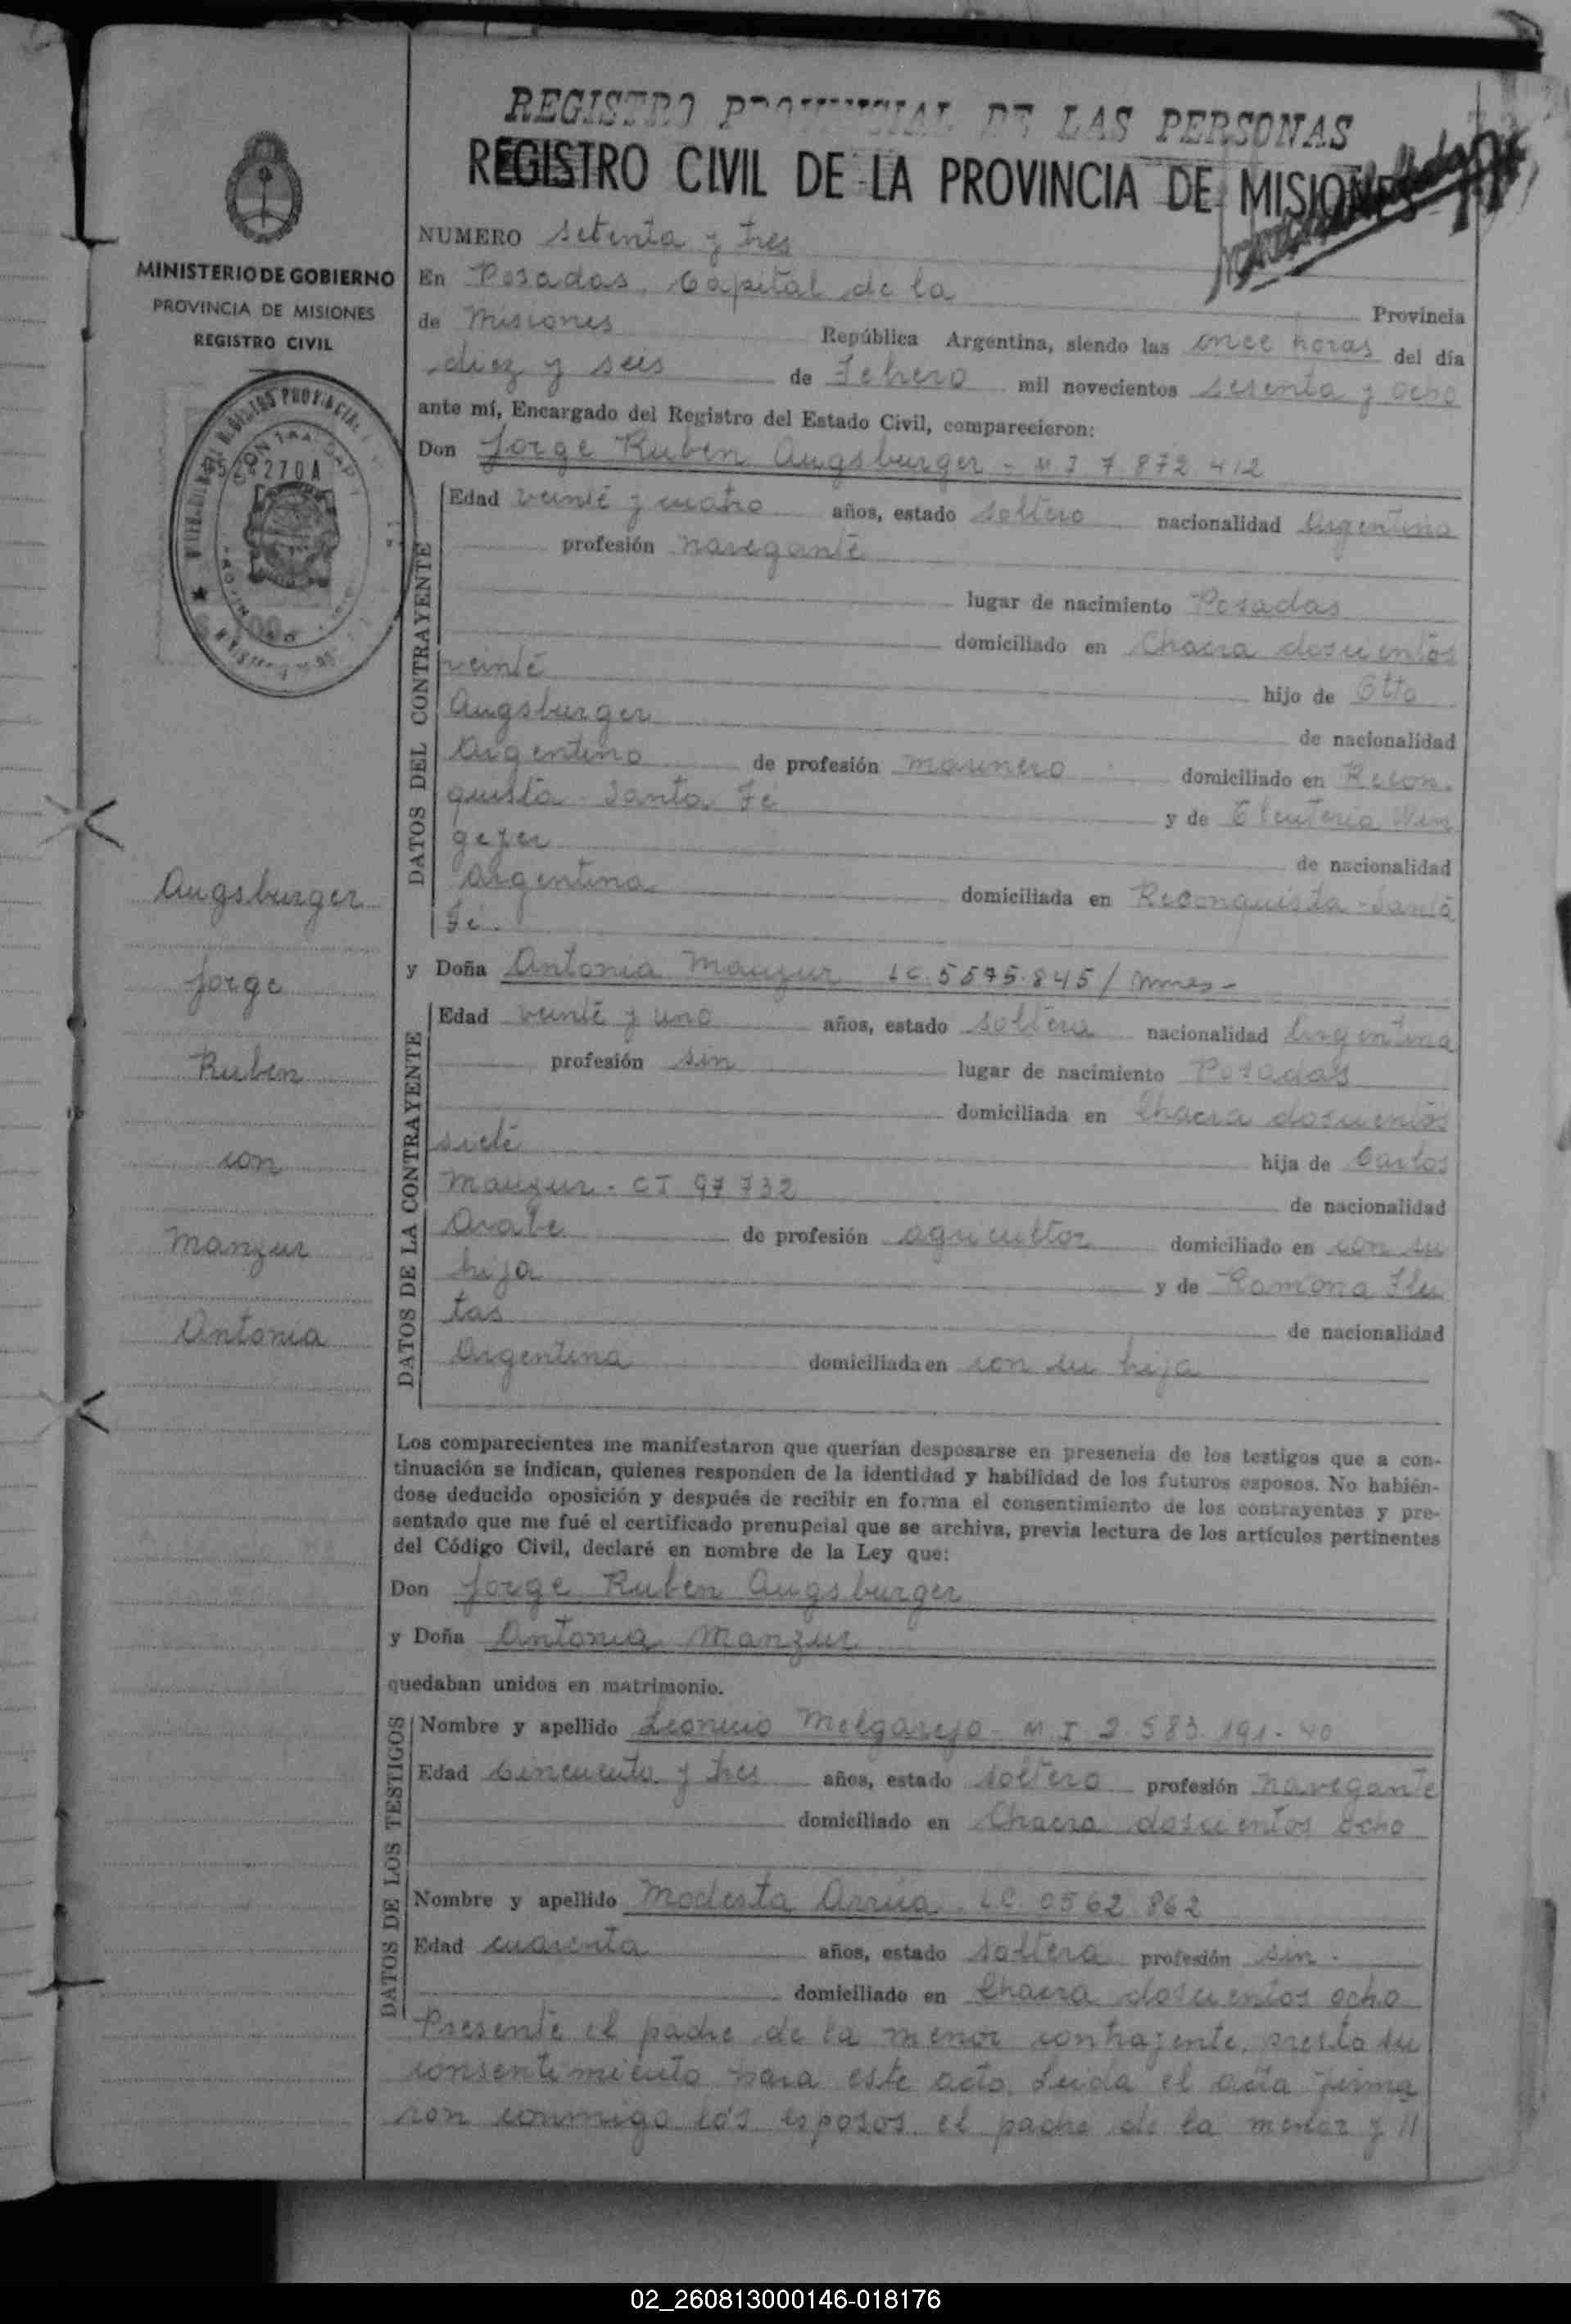 REGISTRO PROVINCIAL DE LAS PERSONAS
REGISTRO CIVIL DE LA PROVINCIA DE MISIONES
MINISTERIO DE GOBIERNO
PROVINCIA DE MISIONES
REGISTRO CIVIL
Augsburger
Jorge
Ruben
con
Manzur
Antonia
NUMERO setenta y tres
En Posadas, Capital de la Provincia
de Misiones República Argentina, siendo las once horas del día
diez y seis de Febrero mil novecientos sesenta y ocho
ante mí, Encargado del Registro del Estado Civil, comparecieron:
Don Jorge Ruben Augsburger - M I 7.872.412
DATOS DEL CONTRAYENTE
Edad veinte y cuatro años, estado soltero nacionalidad Argentina
profesión navegante
lugar de nacimiento Posadas
domiciliado en Chacra doscientos
veinte hijo de Otto
Augsburger de nacionalidad
Argentino de profesión marinero domiciliado en Recon-
quista - Santa Fé y de Eleuteria
de nacionalidad
Argentina domiciliada en Reconquista - Santa
Fé.
y Doña Antonia Manzur LC. 5575.845 /
DATOS DE LA CONTRAYENTE
Edad veinte y uno años, estado soltera nacionalidad Argentina
profesión sin lugar de nacimiento Posadas
domiciliada en Chacra doscientos
siete hija de Carlos
Manzur - CI 97732 de nacionalidad
Arabe de profesión agricultor domiciliado en con su
hija y de Ramona Fleu
tas de nacionalidad
Argentina domiciliada en con su hija
Los comparecientes me manifestaron que querían desposarse en presencia de los testigos que a con-
tinuación se indican, quienes responden de la identidad y habilidad de los futuros esposos. No habién-
dose deducido oposición y después de recibir en forma el consentimiento de los contrayentes y pre-
sentado que me fué el certificado prenupcial que se archiva, previa lectura de los artículos pertinentes
del Código Civil, declaré en nombre de la Ley que:
Don Jorge Ruben Augsburger
y Doña Antonia Manzur
quedaban unidos en matrimonio.
DATOS DE LOS TESTIGOS
Nombre y apellido Leoncio Melgarejo - M I 2.583.191 - 40
Edad cincuenta y tres años, estado soltero profesión navegante
domiciliado en Chacra doscientos ocho
Nombre y apellido Modesta Arrúa LC. 0562.862
Edad cuarenta años, estado soltera profesión sin -
domiciliado en Chacra doscientos ocho
Presente el padre de la menor contrayente, presta su
consentimiento para este acto. Leida el acta firma
ron conmigo los esposos el padre de la menor y //
02_260813000146-018176